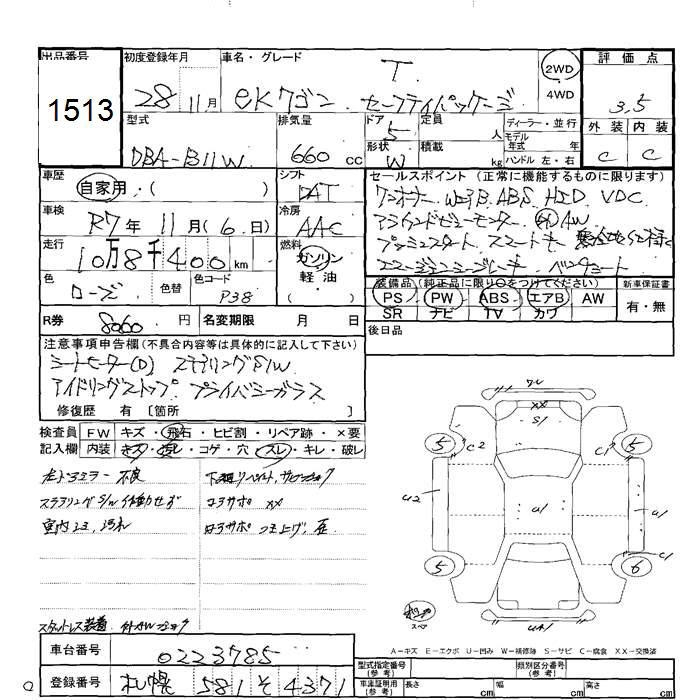 出品番号 1513
初度登録年月 28 11月
車名・グレード T
eKワゴン セーフティパッケージ
2WD
4WD
評価点 3.5
外装 内装
C C
型式 DBA-B11W
排気量 660 cc
ドア 5
形状 W
定員 人
積載 kg
ディーラー・並行
モデル年式 年
ハンドル 左・右
車歴 自家用・( )
シフト
冷房 AAC
車検 R7年 11月(6日)
走行 10万8千400km
燃料 ガソリン
軽油
( )
色 ローズ 色替
色コード P38
セールスポイント (正常に機能するものに限ります)
ワンオーナー WエアB ABS HID VDC
アラウンドビューモニター AW
プッシュスタート スマートキー
エマージェンシーブレーキ ベンチシート
装備品 (純正品に限り○をつけてください)
PS PW ABS エアB AW
SR ナビ TV カワ
新車保証書
有・無
後日品
R券 8060円
名変期限 月 日
注意事項申告欄(不具合内容等は具体的に記入して下さい)
シートヒーター(D) ステアリングS/W
アイドリングストップ プライバシーガラス
修復歴 有 〔箇所 〕
検査員記入欄
FW キズ・飛石・ヒビ割・リペア跡・×要
内装 キズ・汚レ・コゲ・穴・スレ・キレ・破レ
左ドアミラー不良
ステアリングS/W作動せず
室内ゴミ、汚れ
コアサポ XX
コアサポつき上げ、歪
5 5 5 6
C2 C1 U2 A1 A1 C1 S1 XX
スペア
A-キズ E-エクボ U-凹み W-補修跡 S-サビ C-腐食 XX-交換済
車台番号 0223785
登録番号 札幌 581 そ 4371
型式指定番号(参考)
類別区分番号(参考)
車庫証明用(参考) 長さ cm 幅 cm 高さ cm